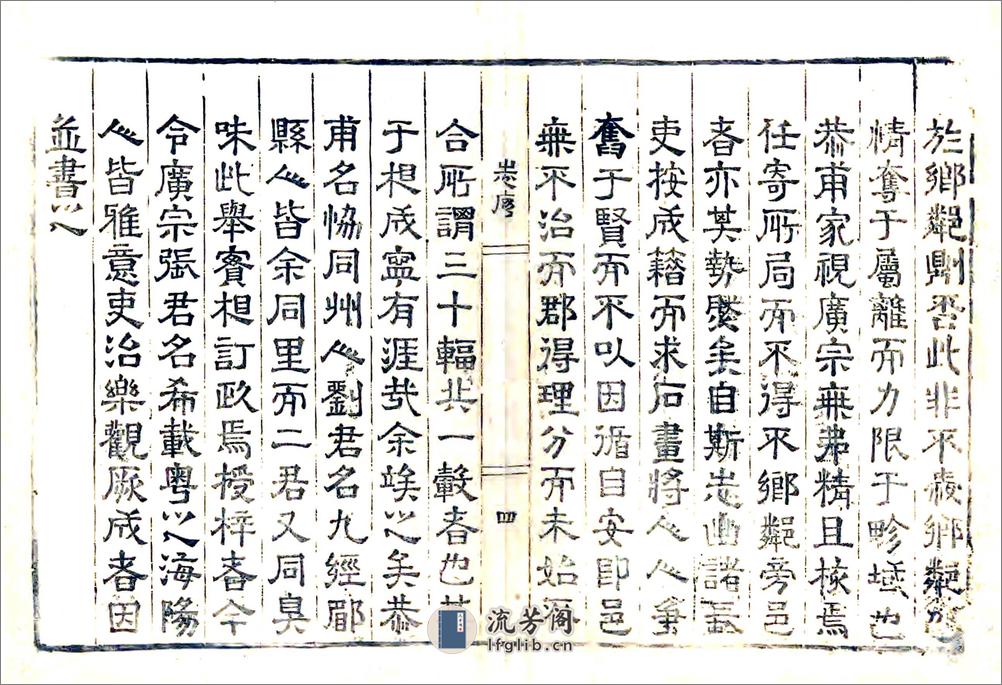 於鄉鄰則否此非不鄉鄰
情奪于屬離而力限于畛域也
恭甫家視廣宗無弗精且核焉
任寄所局而不得不鄉鄰旁邑
者亦其勢矣自斯志出諸長
吏按成籍而求石畫將人人爭
奮于賢而不以因循自安即邑
無不治而郡得理分而未始不
序
四
合所謂三十輻共一轂者也其
于相成寧有涯哉余竢之矣恭
甫名協同州人劉君名九經郿
縣人皆余同里而二君又同臭
味此舉實相訂政焉授梓者今
令廣宗張君名希載粵之海陽
人皆雅意吏治樂觀厥成者因
並書之
流芳阁
lfglib.cn